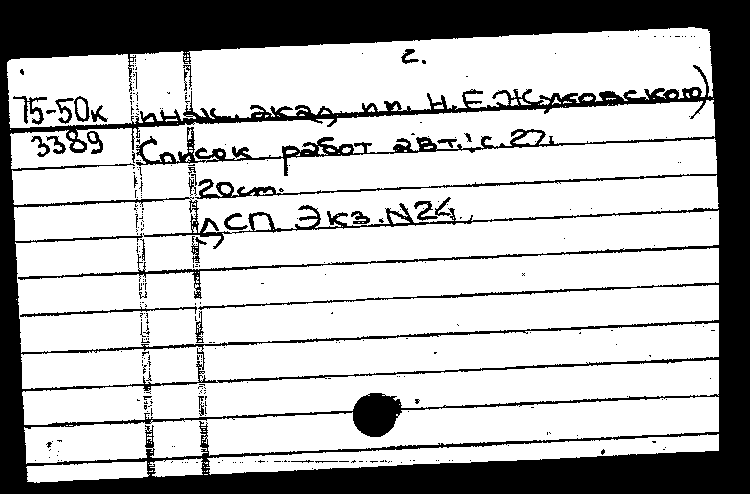 2.
75-50к инж. акад. им. Н.Е.Жуковского)
3389 Список работ авт.: с. 27.
20см.
ДСП Экз. N24